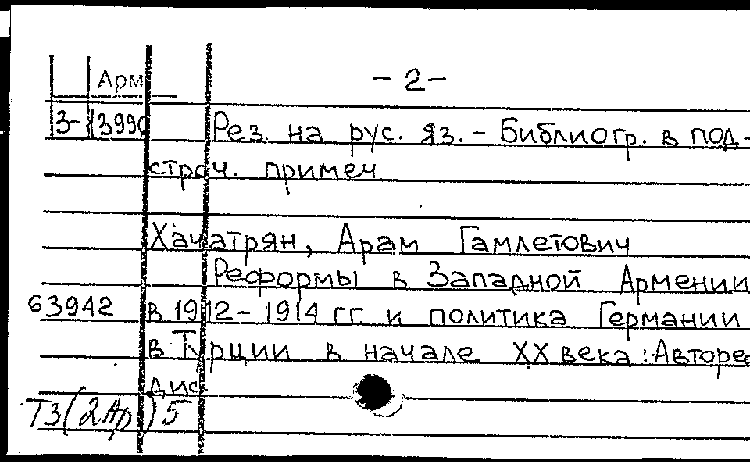 Арм
- 2 -
3- 13990 Рез. на рус. яз. - Библиогр. в под-
строч. примеч
Хачатрян, Арам Гамлетович
Реформы в Западной Армении
63942 в 1912-1914 гг. и политика Германии
в Турции в начале XX века : Авторе
дис
Т3(2Ар)5